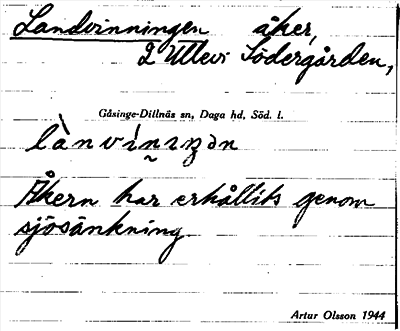 Landvinningen åker,
2 Ullevi Södergården,
Gåsinge-Dillnäs sn, Daga hd, Söd. l.
Åkern har erhållits genom
sjösänkning
Artur Olsson 1944